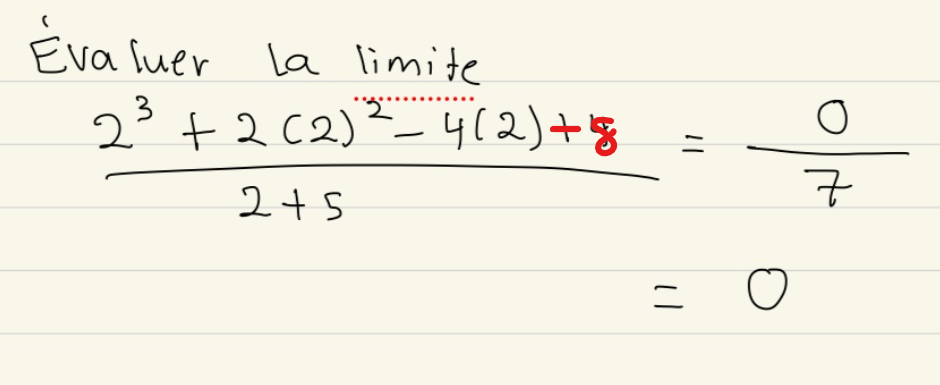 Évaluer la limite
2³ + 2(2)² − 4(2) + 8 / 2 + 5 = 0 / 7
= 0